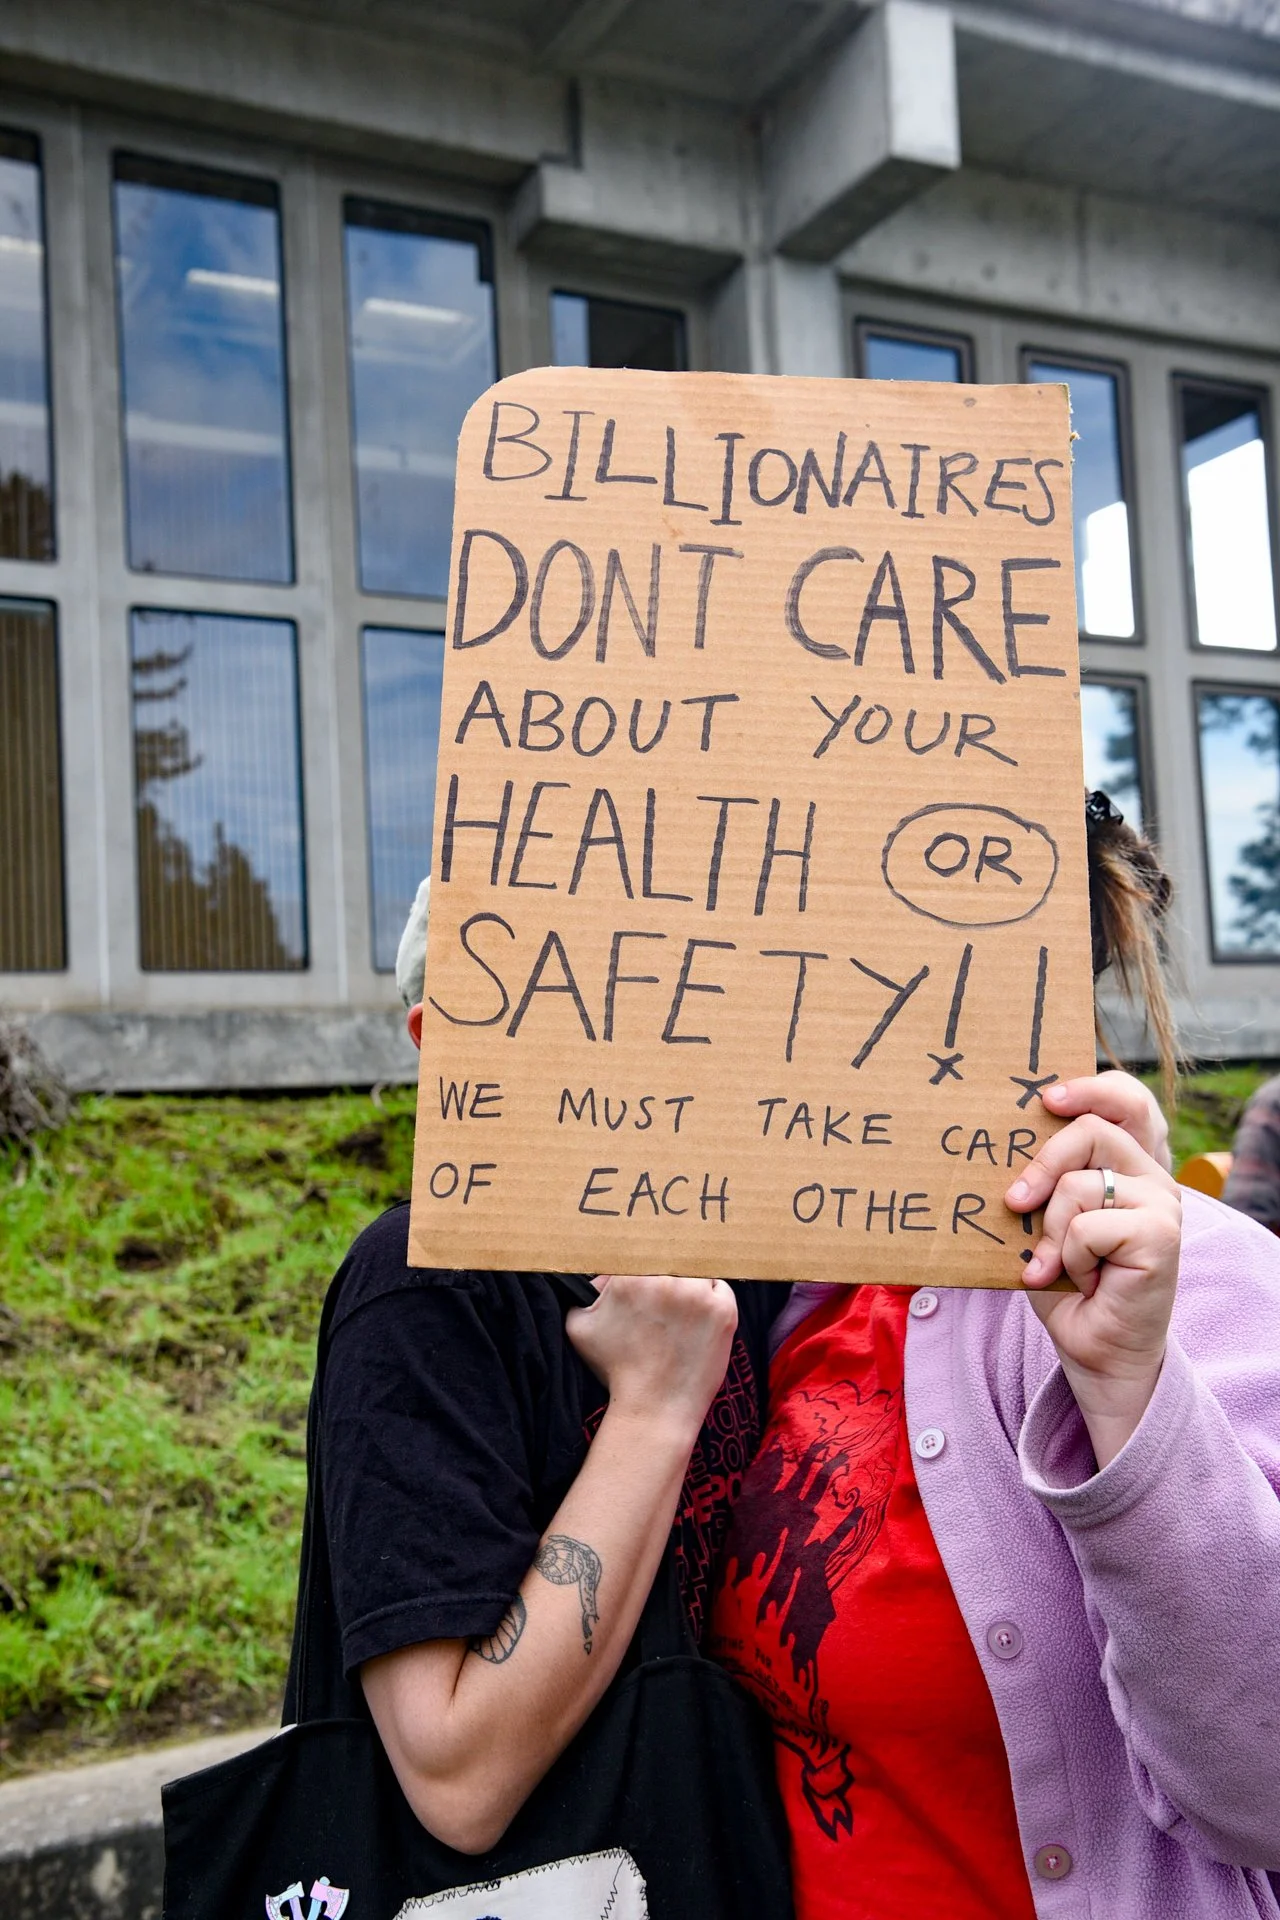 BILLIONAIRES
DONT CARE
ABOUT YOUR
HEALTH OR
SAFETY!!
WE MUST TAKE CAR
OF EACH OTHER!